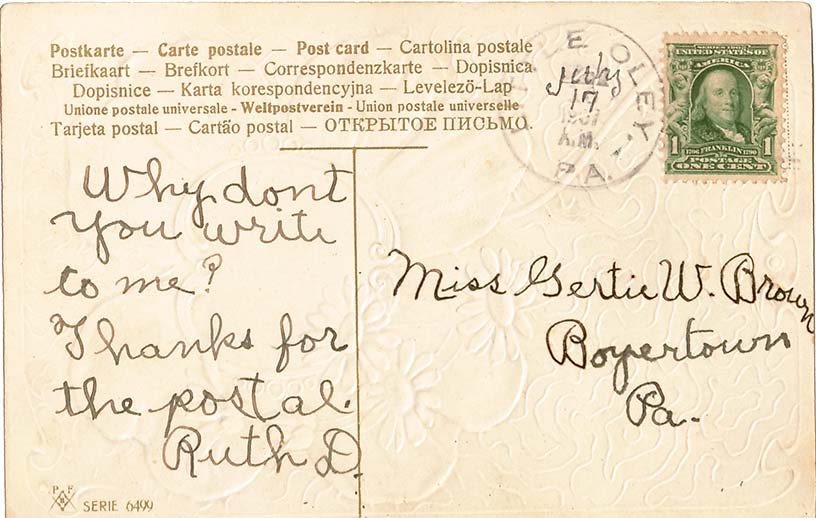 Postkarte — Carte postale — Post card — Cartolina postale
Briefkaart — Brefkort — Correspondenzkarte — Dopisnica
Dopisnice — Karta korespondencyjna — Levelezö-Lap
Unione postale universale - Weltpostverein - Union postale universelle
Tarjeta postal — Cartão postal — ОТКРЫТОЕ ПИСЬМО.
OLEY
July
17
1907
A.M.
PA.
SERIES 1902
UNITED STATES OF
AMERICA
1 1
1706 FRANKLIN 1790
POSTAGE
ONE CENT
Why dont
you write
to me?
Thanks for
the postal.
Ruth D.
Miss Gertie W. Brown
Boyertown
Pa.
P F
B
SERIE 6499